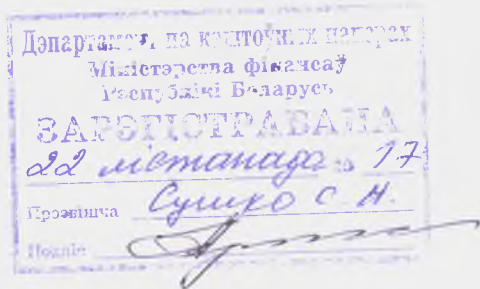 Дэпартамент па каштоўных паперах
Міністэрства фінансаў
Рэспублікі Беларусь
ЗАРЭГІСТРАВАНА
22 лістапада 17
Прозвішча Сушко С. Н.
Подпіс